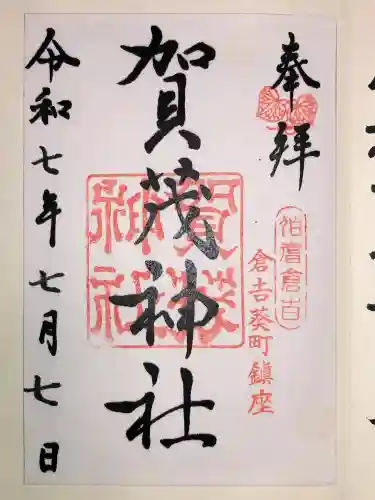 奉拝
伯耆倉吉
倉吉葵町鎮座
賀茂神社
賀茂
神社
令和七年七月七日